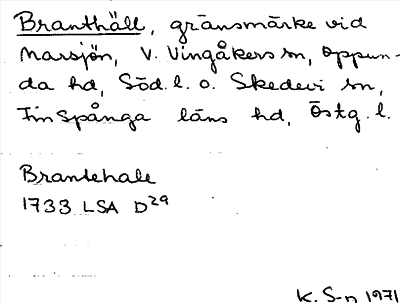 Branthäll, gränsmärke vid
Marsjön, V. Vingåkers sn, Oppun-
da hd, Söd. l. o. Skedevi sn,
Finspånga läns hd, Östg. l.
Brantehale
1733 LSA D29
K. S-n 1971